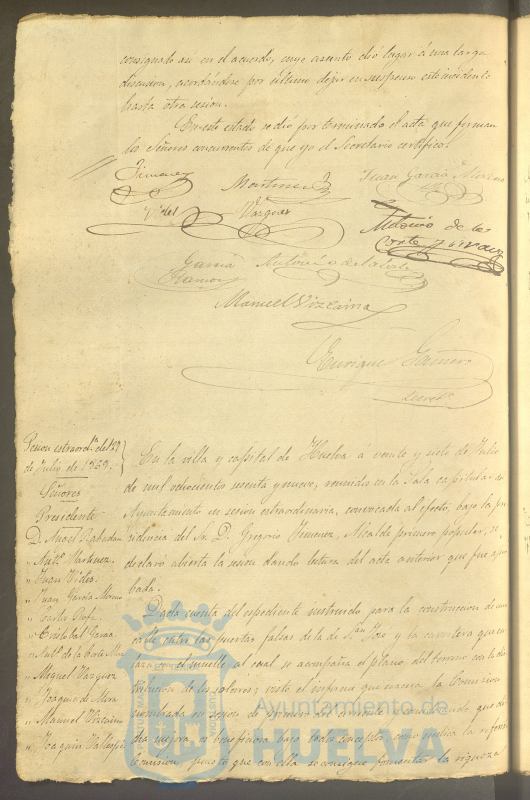 consignado en el acuerdo, cuyo asunto dió lugar á una larga
discusion, acordandose por ultimo dejar en suspenso este incidente
hasta otra sesion.
En este estado se dió por terminada el acta que firman
los Señores concurrentes de que yo el Secretario certifico.
Jimenez
Martinez
Juan Garcia Moreno
Videl
Vazquez
Antonio de la
Corte y
Garcia
Ramos
Antonio de la Corte
Manuel Vizcaino
Enrique
Secret.º
Sesion estraord.ª del 27
de Julio de 1869.
Señores
Presidente
D. Miguel Rabadan
" Ant.º Martinez
" Juan Videl
" Juan Garcia Moreno
" Carlos
" Cristobal Garcia
" Ant.º de la Corte
" Miguel Vazquez
" Joaquin de Mora
" Manuel Vizcaino
" Joaquin
En la villa y capital de Huelva á veinte y siete de Julio
de mil ochocientos sesenta y nueve, reunidos en la Sala capitular el
Ayuntamiento en sesion estraordinaria, convocada al efecto, bajo la pre
sidencia del Sr. D. Gregorio Jimenez, Alcalde primero popular, se
declaró abierta la sesion dando lectura del acta anterior que fue apro
bada.
Dada cuenta del espediente instruido para la construccion de una
calle entre las puertas falsas de la de San José y la carretera que en
laza con el muelle, al cual se acompaña el plano del terreno con la dis
tribucion de los solares; visto el informe que evacua la Comision
nombrada en sesion de primero del corriente; considerando que di
cha mejora es beneficiosa bajo todos conceptos como indica la referida
Comision, puesto que con ella se consigue fomentar la riqueza
Ayuntamiento de
HUELVA